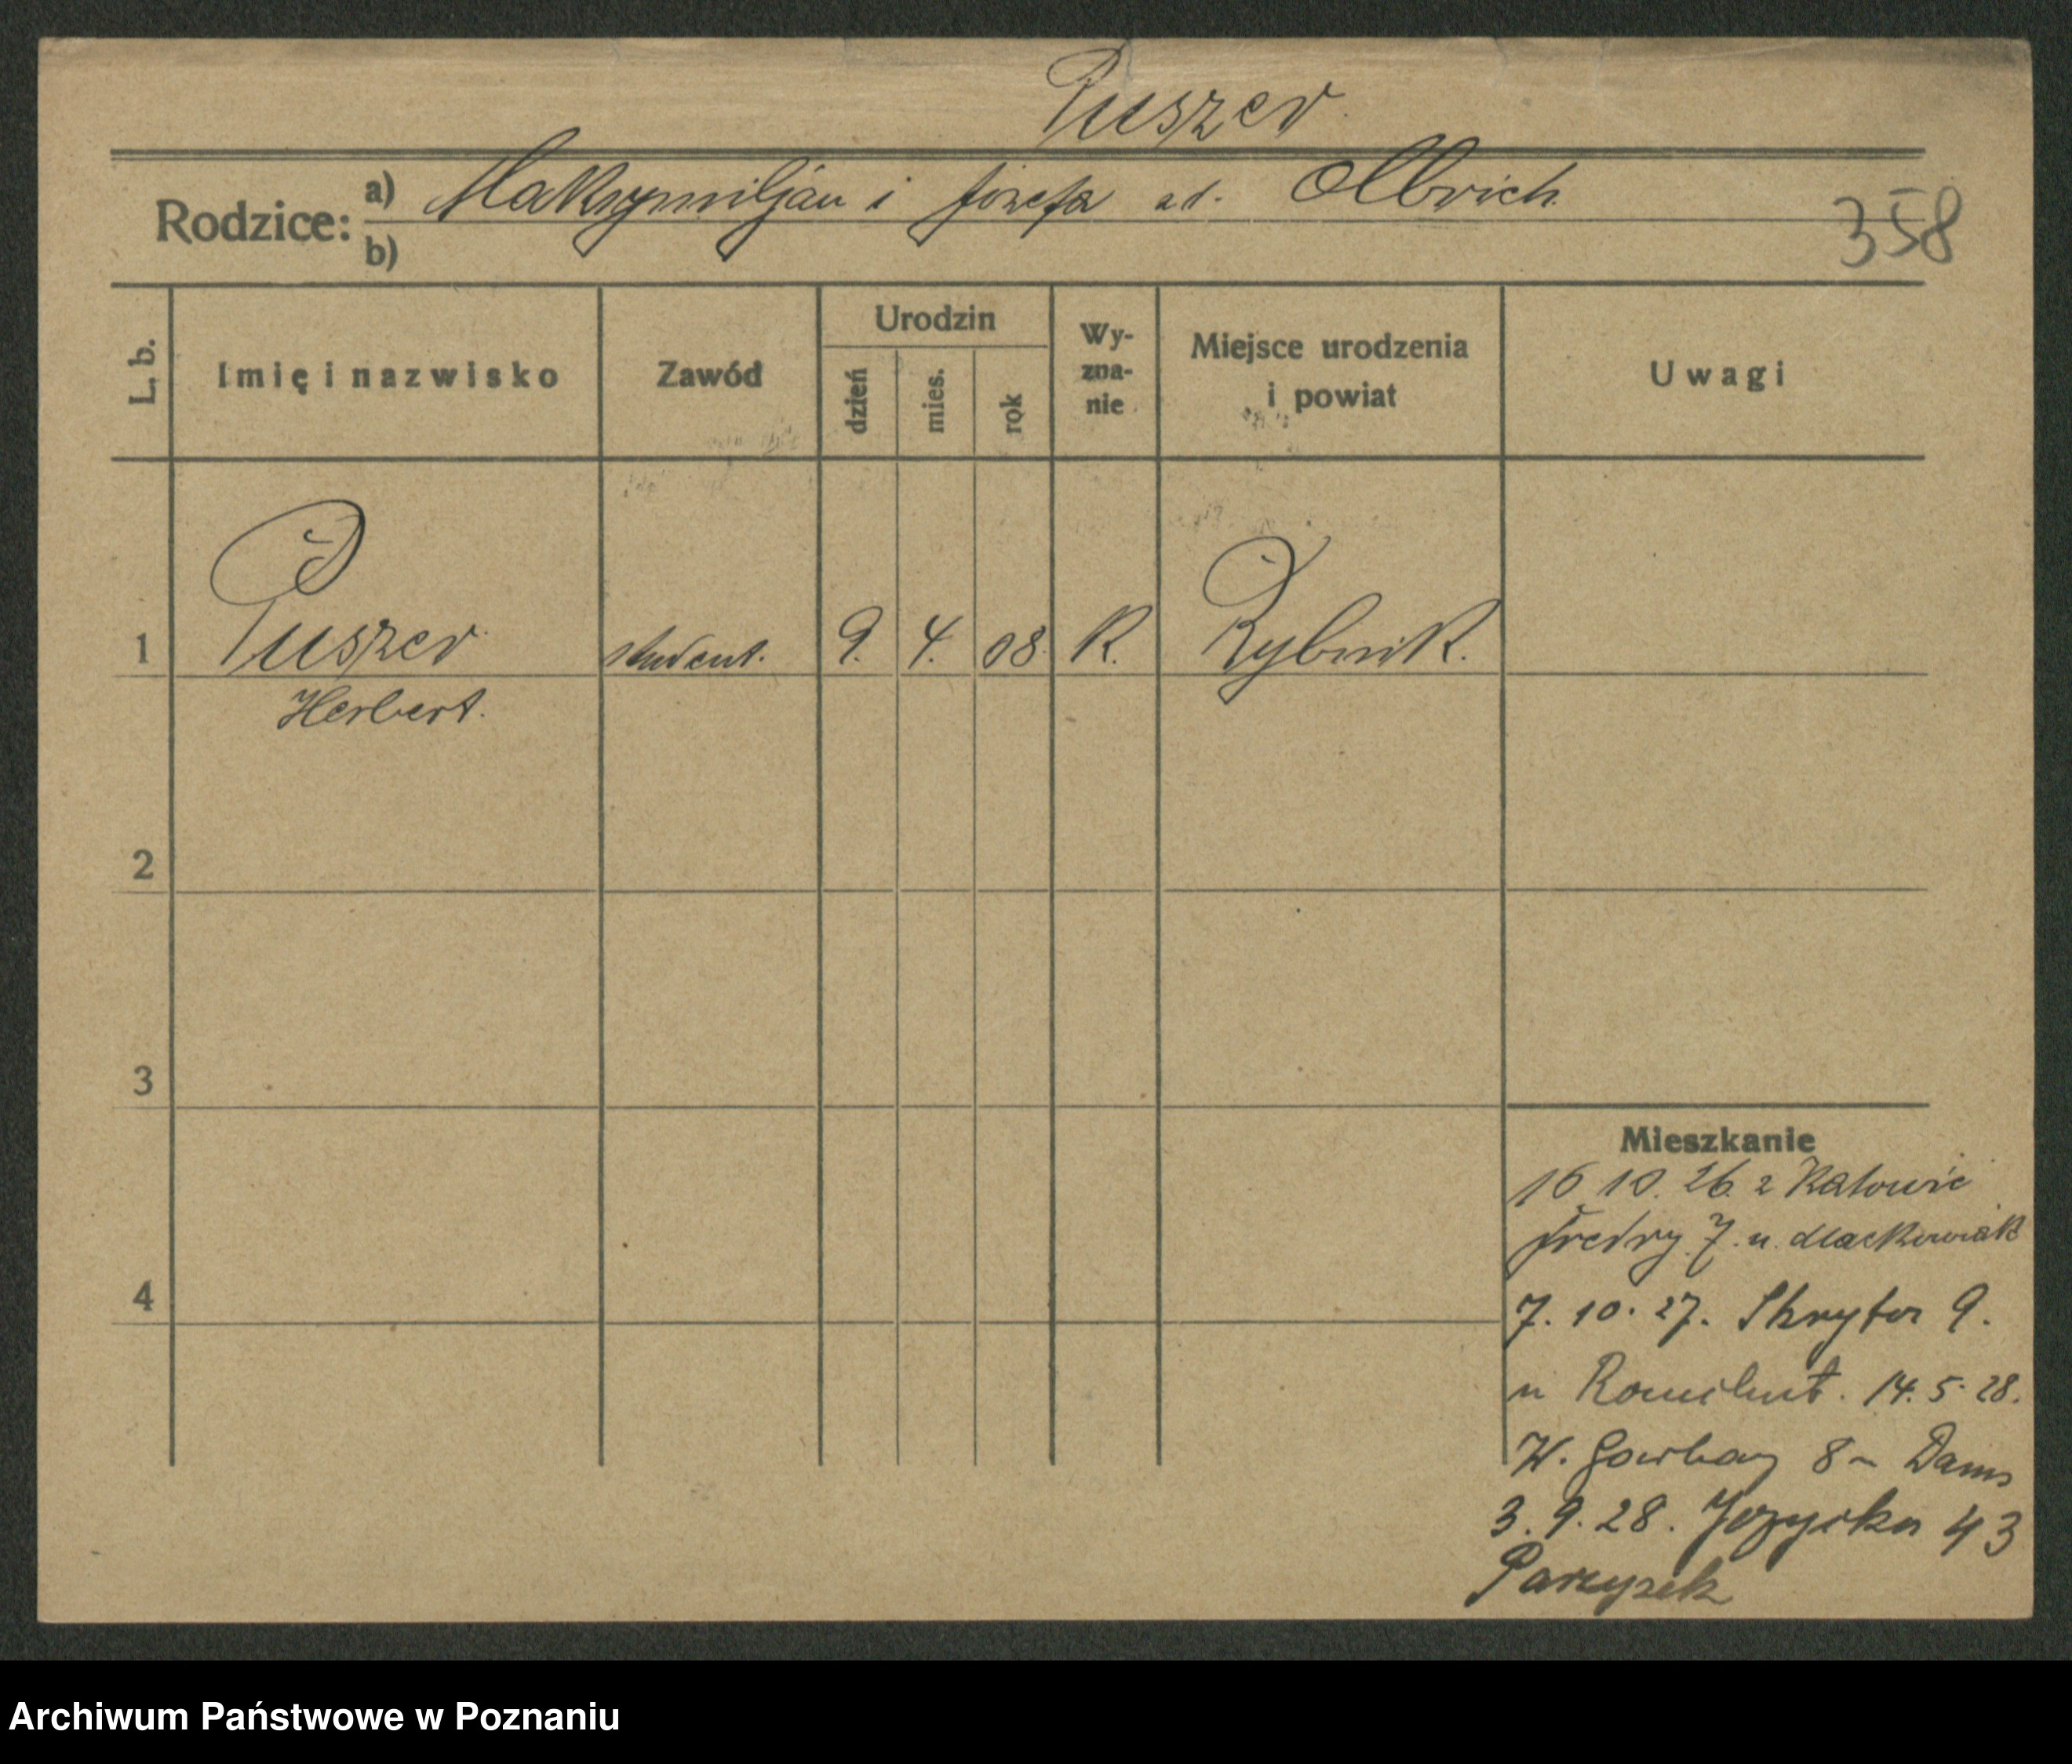 Puszer
Rodzice: a) Maksymiljan i Józefa zd. Olbrich
b)
358
L. b. Imię i nazwisko Zawód Urodzin dzień mies. rok Wy-zna-nie Miejsce urodzenia i powiat Uwagi
1 Puszer student. 9. 4. 08. K. Rybnik.
Herbert.
2
3
4
Mieszkanie
16 10. 26. z Katowic
Fredry 7. u. Maćkowiak
7. 10. 27. 9.
u 14. 5. 28.
W. Garbary 8 Dams
3. 9. 28. 43
Parczyzek
Archiwum Państwowe w Poznaniu